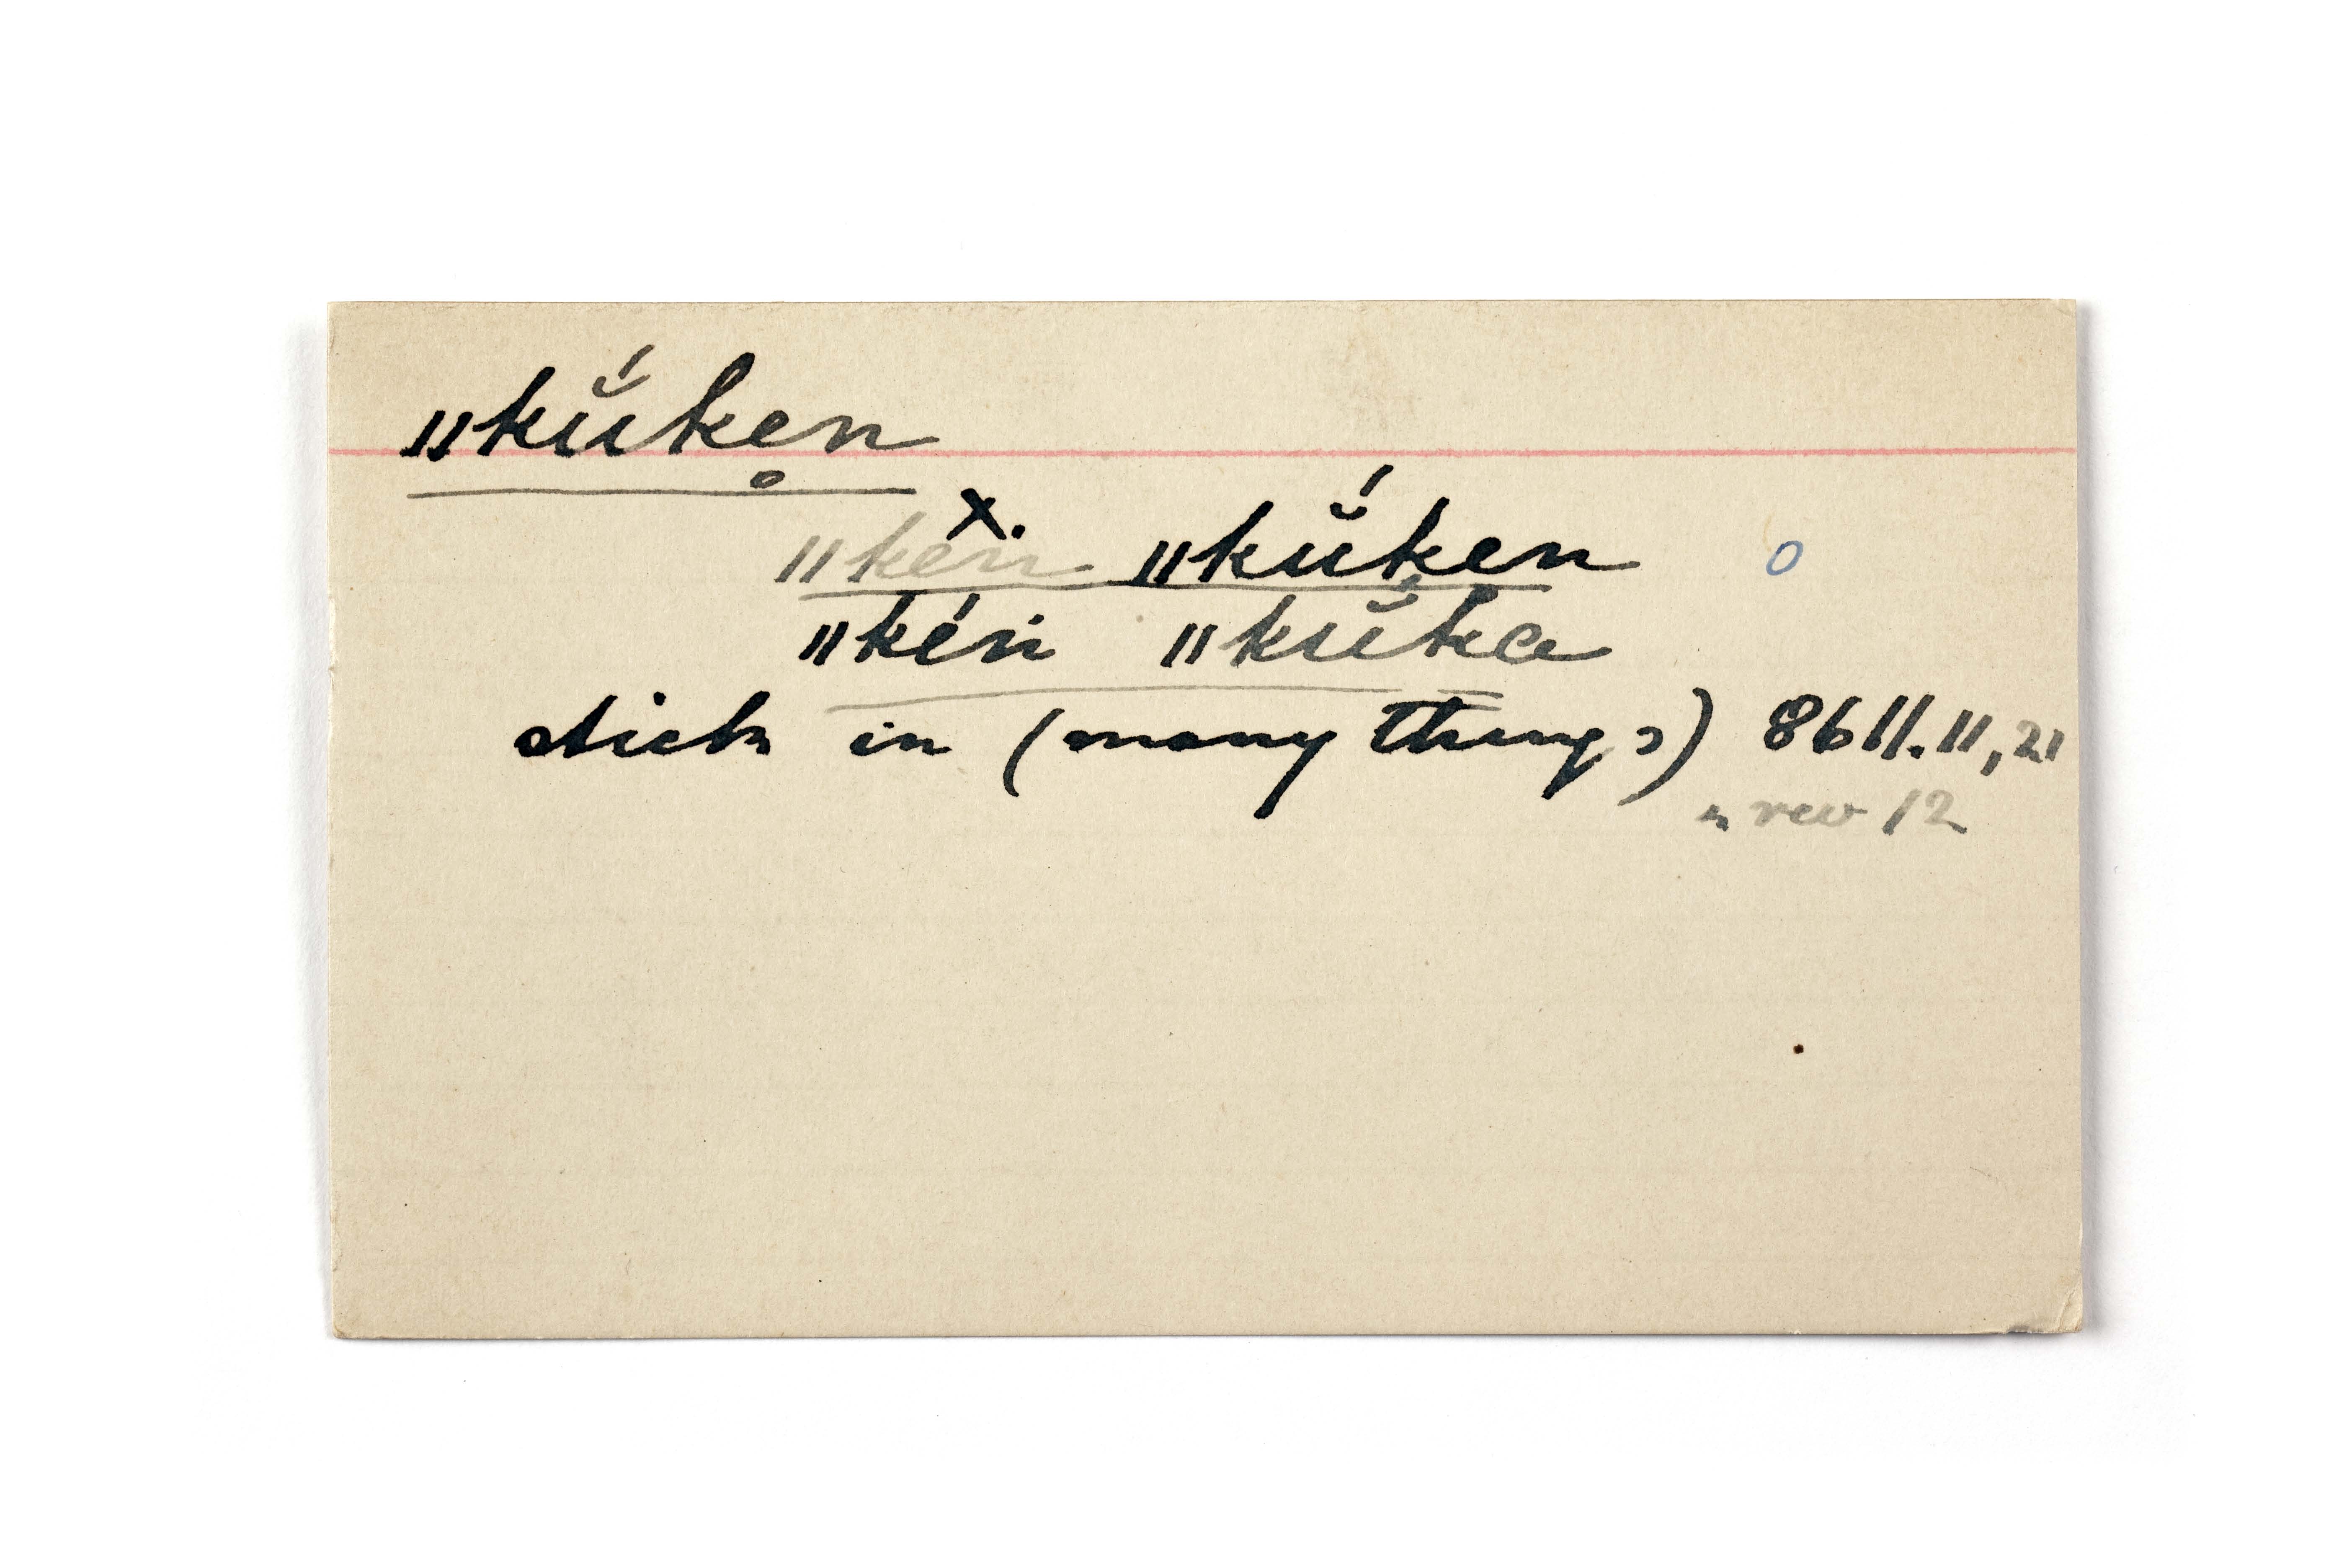 ǁkŭ́ken̥
ǁkeñ ǁkŭ́ken
ǁkéń ǁkŭ́ka
stick in (many things) 8611.11, 21
" rev 12